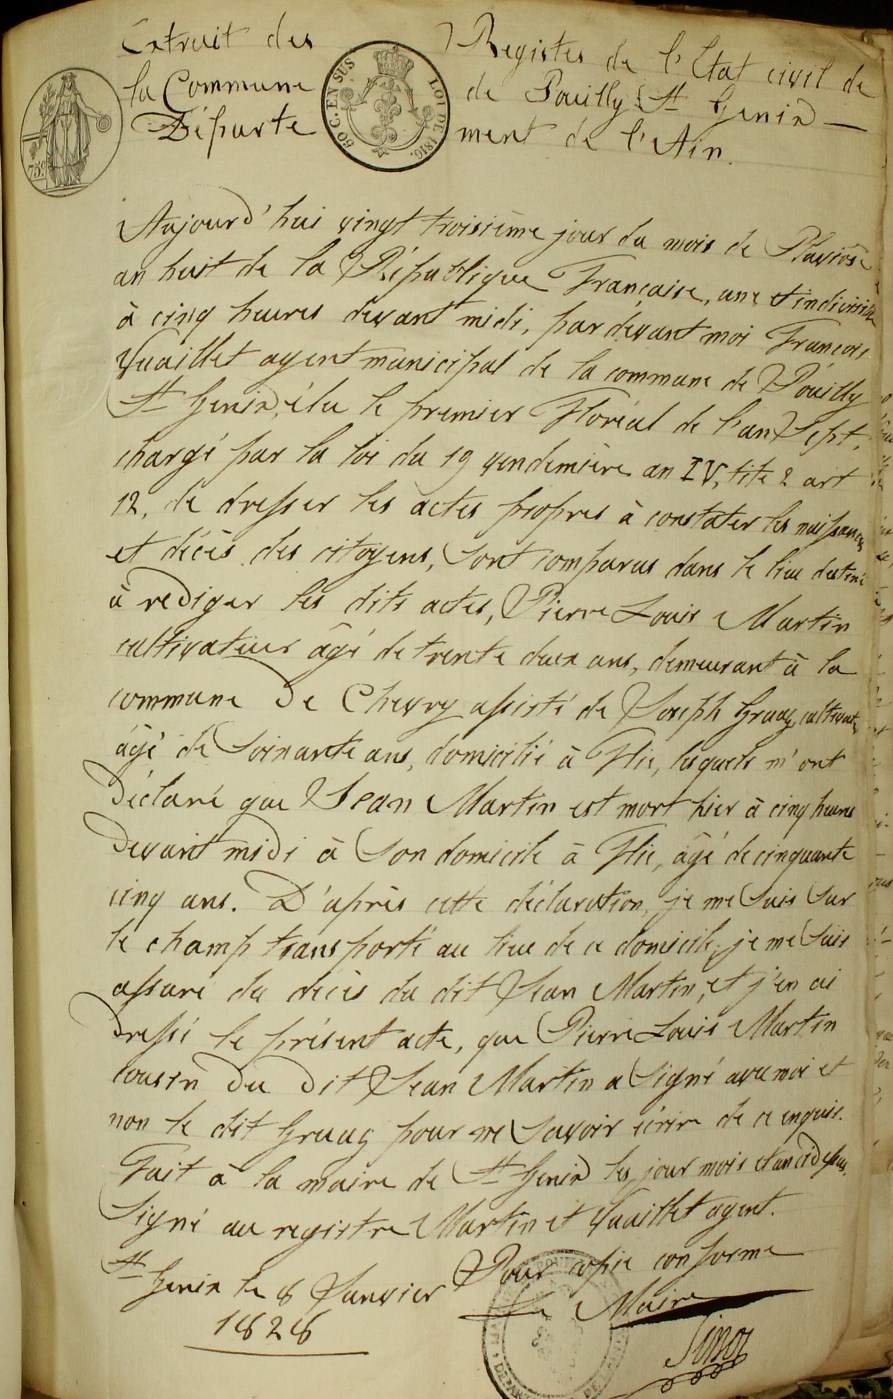 Extrait des Registes de l'Etat civil de
la Commune de Pouilly St Genix
Département de l'Ain.
75c
50 C. EN SUS
LOI DE 1816.
Aujourd'hui vingt troisième jour du mois de Pluviôse
an huit de la République Française, une et indivisible
à cinq heures devant midi, par devant moi François
Vuaillet agent municipal de la commune de Pouilly
St Genix, élu le premier Floréal de l'an Sept,
chargé par la loi du 19 vendemière an IV, tite 2 art
12, de dresser les actes propres à constater les naissances
et décès des citoyens, Sont comparus dans le lieu destiné
à rediger les dits actes, Pierre Louis Martin
cultivateur âgé de trente deux ans, demeurant à la
commune de Chevry assisté de Joseph Gruaz cultivateur
âgé de Soixante ans, domicilié à Flie, lesquels m'ont
Déclaré que Jean Martin est mort hier à cinq heures
Devant midi à Son domicile à Flie, âgé de cinquante
cinq ans. D'après cette déclaration, je me Suis Sur
le champ transporté au lieu de ce domicile, je me Suis
assuré du décès du dit Jean Martin, et j'en ai
Dressé le présent acte, que Pierre Louis Martin
cousin Du Dit Jean Martin a Signé avec moi et
non le dit Gruaz pour ne Savoir écrire de ce enquis.
Fait à la maire de St Genix les jour mois et an ci dessus.
Signé au registre Martin et Vuaillet agent.
Pour copie conforme
St Genix le 8 Janvier
1828
Le Maire